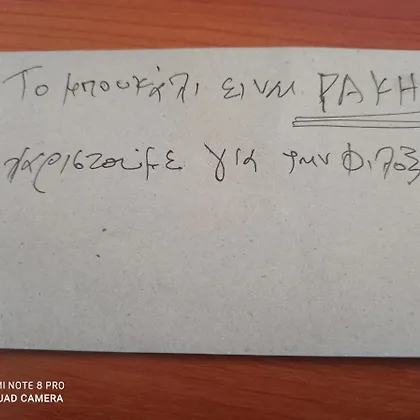 Το μπουκάλι ειναι ΡΑΚΗ
χαριστούμε για την φιλοξ
MI NOTE 8 PRO
UAD CAMERA